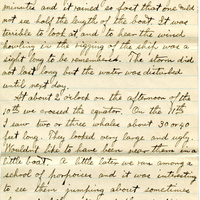 minutes and it rained so fast that one could
not see half the length of the boat. It was
terrible to look at and to hear the wind
howling in the rigging of the ship was a
sight long to be remembered. The storm did
not last long but the water was disturbed
until next day.
At about 2 o'clock on the afternoon of the
10th we crossed the equator. On the 11th
I saw two or three whales about 30 or 40
feet long. They looked very large and ugly.
Wouldn't like to have been near them in a
little boat. A little later we ran among a
school of porpoises and it was interesting
to see them jumping about sometimes